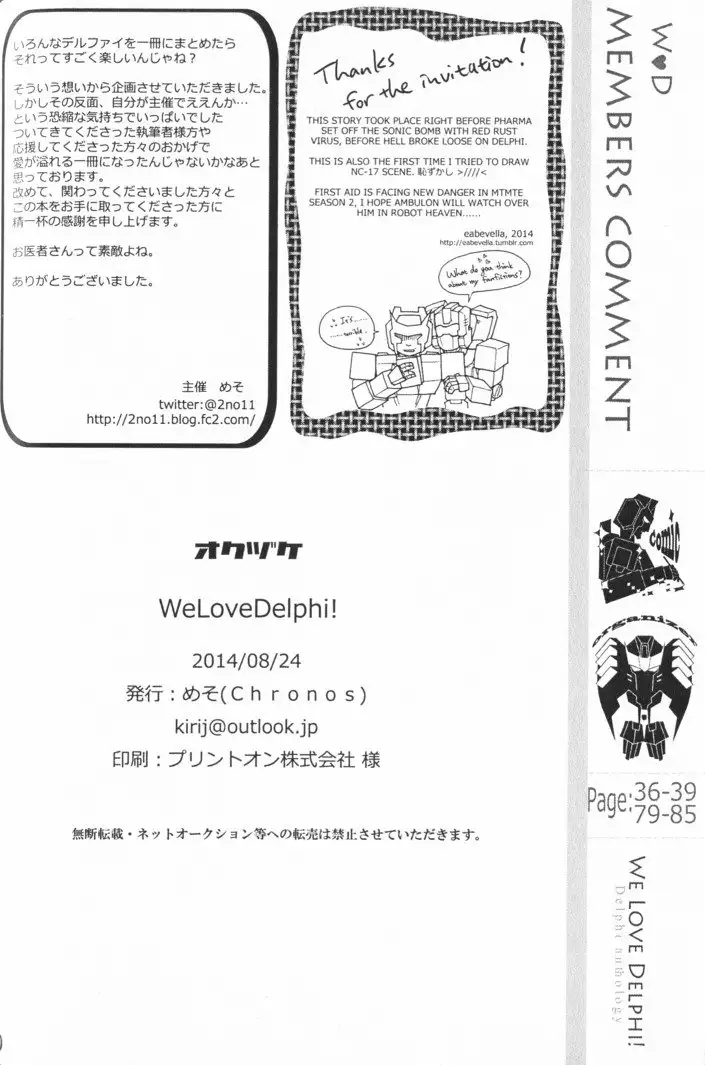 いろんなデルファイを一冊にまとめたら
それってすごく楽しいんじゃね？
そういう想いから企画させていただきました。
しかしその反面、自分が主催でええんか…
という恐縮な気持ちでいっぱいでした
ついてきてくださった執筆者様方や
応援してくださった方々のおかげで
愛が溢れる一冊になったんじゃないかなあと
思っております。
改めて、関わってくださいました方々と
この本をお手に取ってくださった方に
精一杯の感謝を申し上げます。
お医者さんって素敵よね。
ありがとうございました。
主催　めそ
twitter:@2no11
http://2no11.blog.fc2.com/
Thanks
for the invitation!
THIS STORY TOOK PLACE RIGHT BEFORE PHARMA
SET OFF THE SONIC BOMB WITH RED RUST
VIRUS, BEFORE HELL BROKE LOOSE ON DELPHI.
THIS IS ALSO THE FIRST TIME I TRIED TO DRAW
NC-17 SCENE. 恥ずかし >////<
FIRST AID IS FACING NEW DANGER IN MTMTE
SEASON 2, I HOPE AMBULON WILL WATCH OVER
HIM IN ROBOT HEAVEN......
eabevella, 2014
http://eabevella.tumblr.com
What do you think
about my fanfictions?
It's......
terrible.
オクヅケ
WeLoveDelphi!
2014/08/24
発行：めそ(Ｃｈｒｏｎｏｓ)
kirij@outlook.jp
印刷：プリントオン株式会社 様
無断転載・ネットオークション等への転売は禁止させていただきます。
W♥D
MEMBERS COMMENT
comic
organizer
Page:36-39
79-85
WE LOVE DELPHI!
Delphi anthology